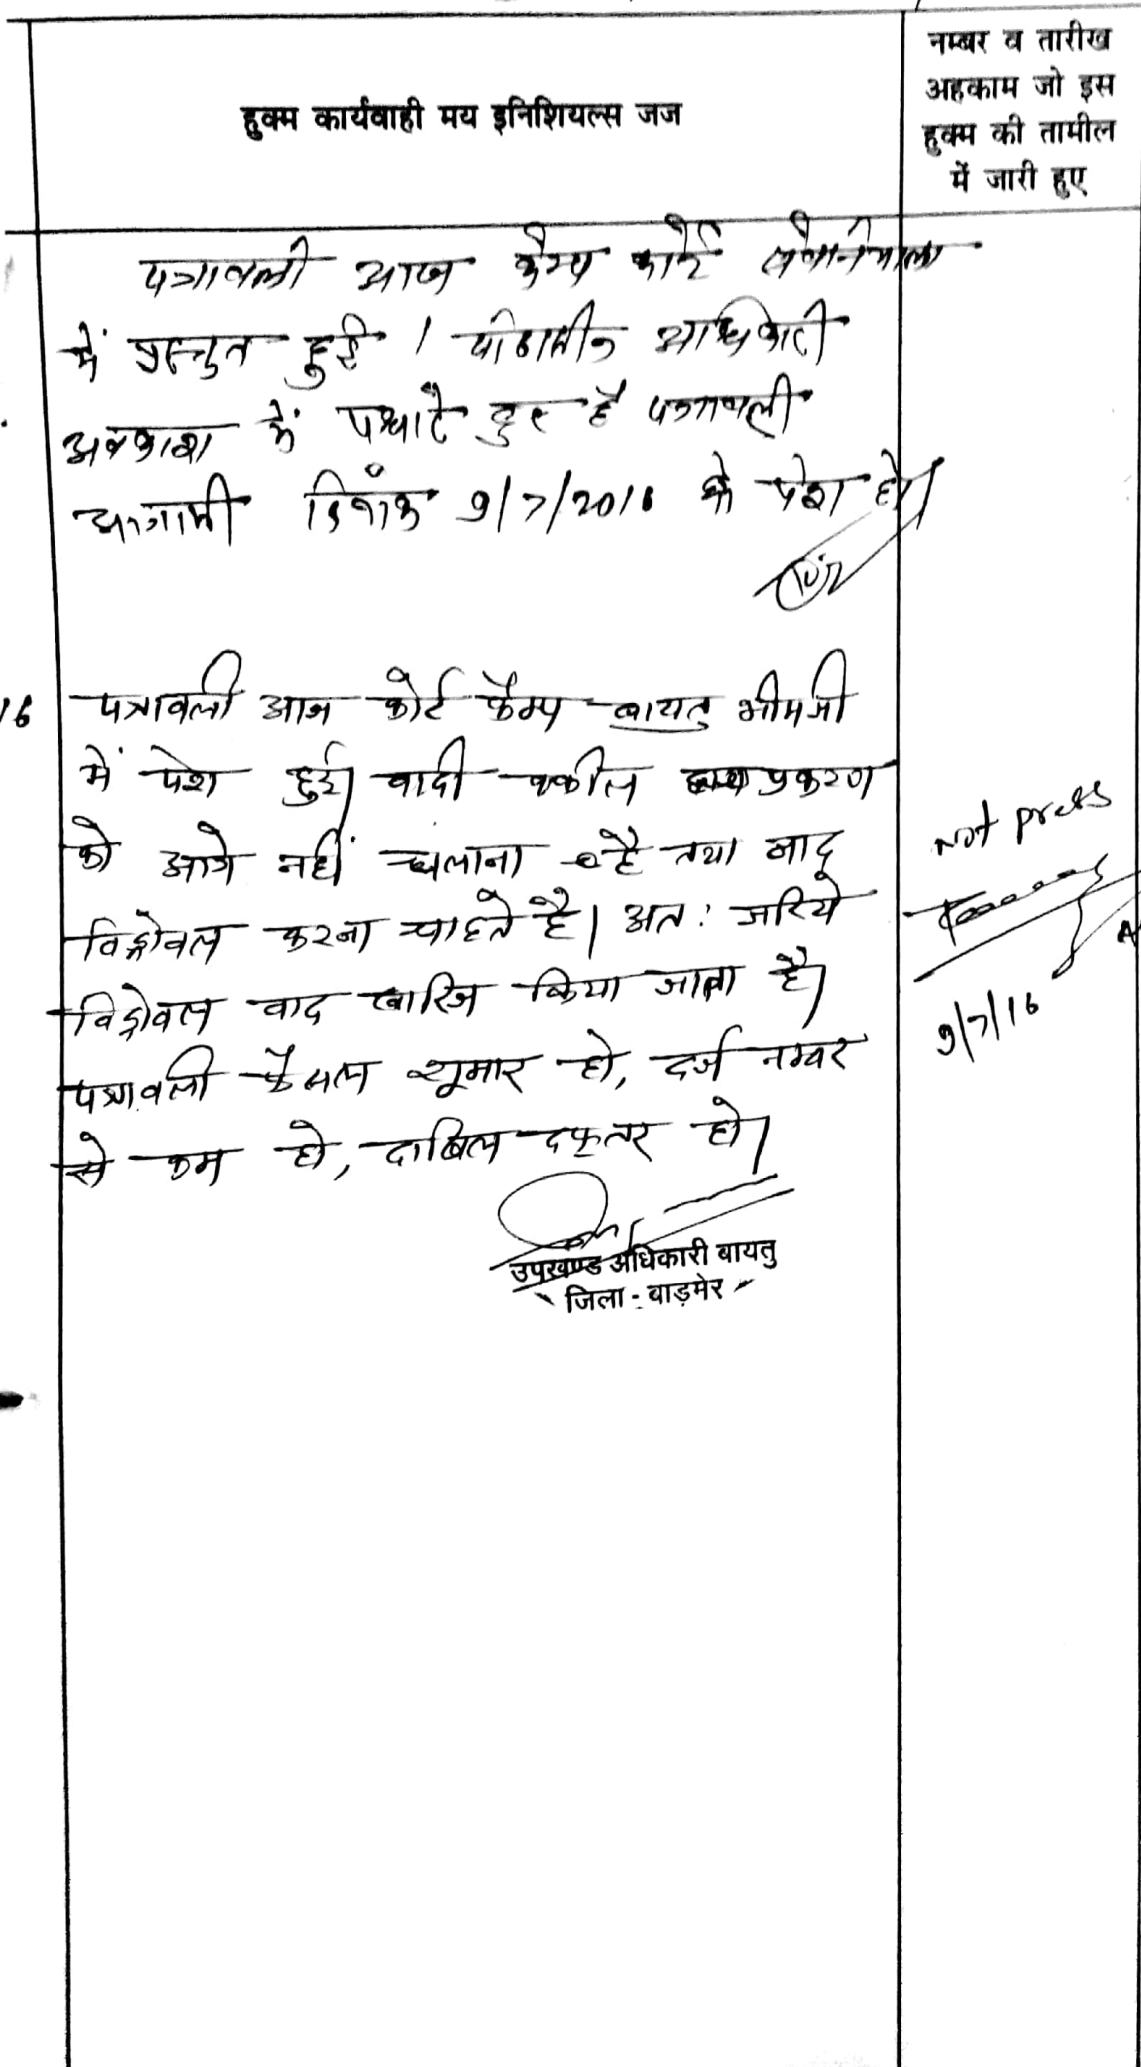 हुक्म कार्यवाही मय इनिशियल्स जज
नम्बर व तारीख
अहकाम जो इस
हुक्म की तामील
में जारी हुए
पत्रावली आज केम्प कोर्ट
में प्रस्तुत हुई । पीठासीन अधिकारी
अवकाश में पधारे हुए है पत्रावली
आगामी दिनांक 9/7/2016 को पेश हो।
16 पत्रावली आज कोर्ट कैम्प बायतु भीमजी
में पेश हुई। वादी वकील प्रकरण
को आगे नहीं चलाना है तथा वाद
विड्रोवल करना चाहते है। अत: जरिये
विड्रोवल वाद खारिज किया जाता है।
पत्रावली फैसल शूमार हो, दर्ज नम्बर
से कम हो, दाखिल दफ्तर हो।
Not press
9/7/16
उपखण्ड अधिकारी बायतु
जिला - बाड़मेर